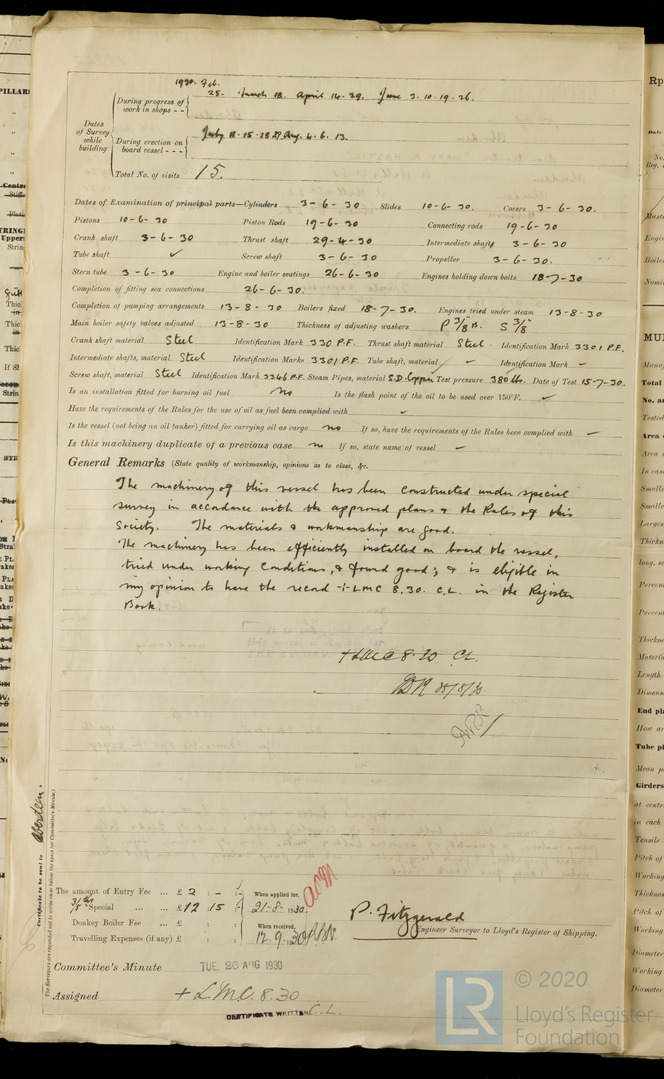 1930. Feb.
During progress of work in shops - - 25. March 18. April 14-29. June 3. 10. 19. 26.
Dates of Survey while building
During erection on board vessel - - - July 11-15-18 Aug. 4. 6. 13.
Total No. of visits 15.
Dates of Examination of principal parts—Cylinders 3-6-30 Slides 10-6-30. Covers 3-6-30.
Pistons 10-6-30 Piston Rods 19-6-30 Connecting rods 19-6-30
Crank shaft 3-6-30 Thrust shaft 29-4-30 Intermediate shafts 3-6-30
Tube shaft ✓ Screw shaft 3-6-30 Propeller 3-6-30.
Stern tube 3-6-30 Engine and boiler seatings 26-6-30 Engines holding down bolts 18-7-30
Completion of fitting sea connections 26-6-30.
Completion of pumping arrangements 13-8-30 Boilers fixed 18-7-30. Engines tried under steam 13-8-30
Main boiler safety valves adjusted 13-8-30 Thickness of adjusting washers P 3/8" S 3/8"
Crank shaft material Steel Identification Mark 330 P.F. Thrust shaft material Steel Identification Mark 3301 P.F.
Intermediate shafts, material Steel Identification Marks 3301 P.F. Tube shaft, material ✓ Identification Mark –
Screw shaft, material Steel Identification Mark 3346 P.F. Steam Pipes, material S.D. Copper Test pressure 380 lbs. Date of Test 15-7-30.
Is an installation fitted for burning oil fuel no Is the flash point of the oil to be used over 150°F. ✓
Have the requirements of the Rules for the use of oil as fuel been complied with ✓
Is the vessel (not being an oil tanker) fitted for carrying oil as cargo no If so, have the requirements of the Rules been complied with –
Is this machinery duplicate of a previous case no If so, state name of vessel –
General Remarks (State quality of workmanship, opinions as to class, &c.
The machinery of this vessel has been constructed under special
survey in accordance with the approved plans & the Rules of this
Society. The materials & workmanship are good.
The machinery has been efficiently installed on board the vessel,
tried under working conditions, & found good; & is eligible in
my opinion to have the record + LMC 8.30. C.L. in the Register
Book.
+ LMC 8.30 CL.
Certificate to be sent to Aberdeen.
(The Surveyors are requested not to write on or below the space for Committee's Minute.)
The amount of Entry Fee ... £ 2 : - : When applied for,
Special ... ... £ 12 15 : 21-8-1930.
Donkey Boiler Fee ... £ : : When received,
Travelling Expenses (if any) £ : : 12.9.30
P. Fitzgerald
Engineer Surveyor to Lloyd's Register of Shipping.
Committee's Minute TUE. 26 AUG 1930
Assigned + L.M.C. 8.30
CERTIFICATE WRITTEN C.L.
© 2020
LR
Lloyd's Register
Foundation